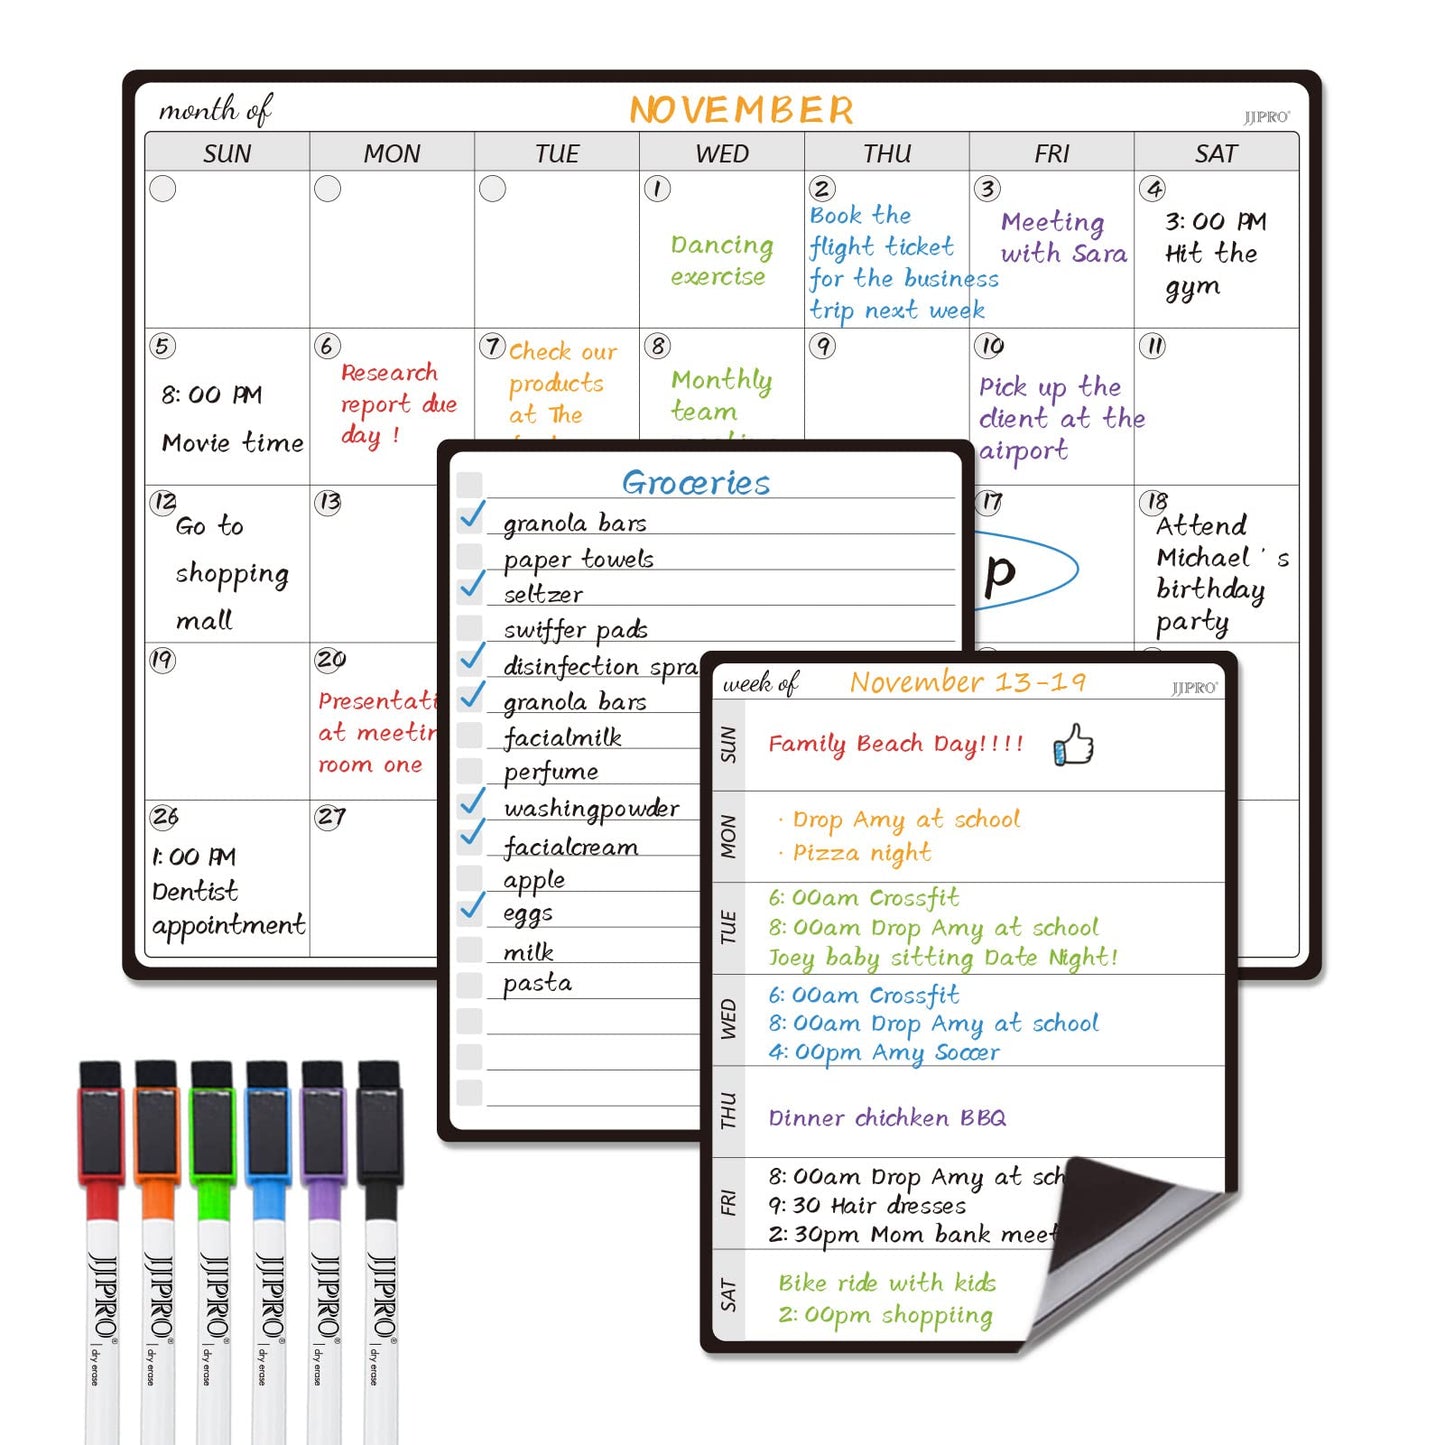 month of NOVEMBER JJPRO®
SUN MON TUE WED THU FRI SAT
1
Dancing
exercise
2
Book the
flight ticket
for the business
trip next week
3
Meeting
with Sara
4
3: 00 PM
Hit the
gym
5
8: 00 PM
Movie time
6
Research
report due
day !
7
Check our
products
at The
8
Monthly
team
9
10
Pick up the
client at the
airport
11
12
Go to
shopping
mall
13
17
p
18
Attend
Michael ' s
birthday
party
19
20
Presentati
at meetin
room one
26
1: 00 PM
Dentist
appointment
27
Groceries
granola bars
paper towels
seltzer
swiffer pads
disinfection spra
granola bars
facialmilk
perfume
washingpowder
facialcream
apple
eggs
milk
pasta
week of November 13-19 JJPRO®
SUN
Family Beach Day!!!!
MON
· Drop Amy at school
· Pizza night
TUE
6: 00am Crossfit
8: 00am Drop Amy at school
Joey baby sitting Date Night!
WED
6: 00am Crossfit
8: 00am Drop Amy at school
4: 00pm Amy Soccer
THU
Dinner chichken BBQ
FRI
8: 00am Drop Amy at sch
9: 30 Hair dresses
2: 30pm Mom bank meet
SAT
Bike ride with kids
2: 00pm shoppiing
JJPRO® | dry erase
JJPRO® | dry erase
JJPRO® | dry erase
JJPRO® | dry erase
JJPRO® | dry erase
JJPRO® | dry erase